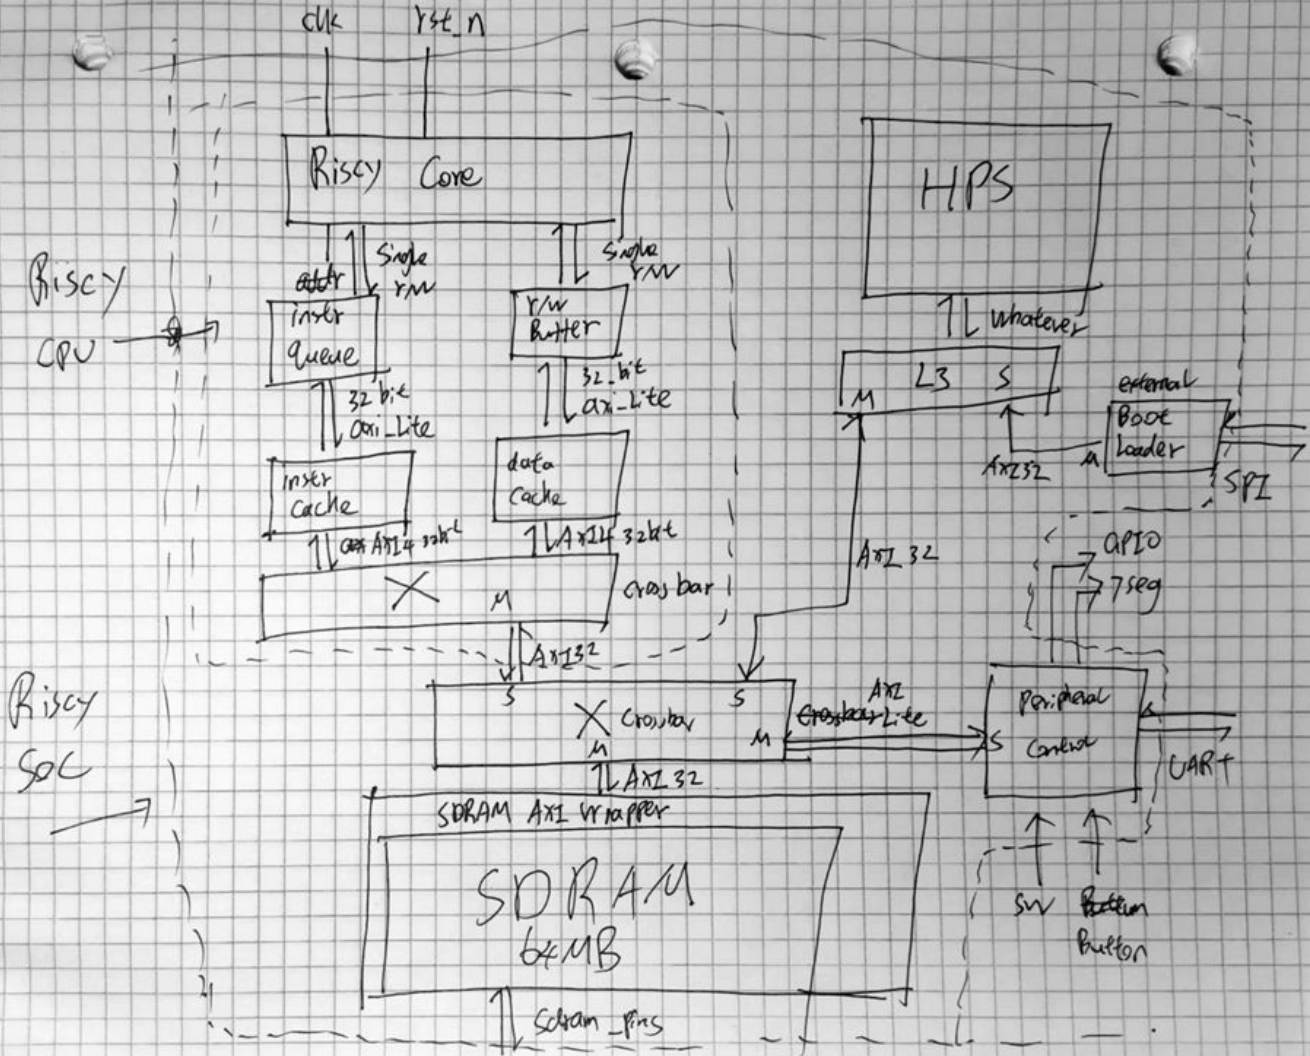 clk rst_n
Riscy Core
HPS
Single
r/w
Single
r/w
addr
instr
queue
r/w
Buffer
whatever
Riscy
CPU
32 bit
axi_Lite
32_bit
axi_Lite
L3 S
M
external
Boot
Loader
M
AXI32
SPI
instr
cache
data
cache
AXI4 32bit
AXI4 32bit
AXI 32
GPIO
7seg
X
M
crossbar
AXI32
Riscy
SoC
S
S
X Crossbar
M
M
AXI
Crossbar Lite
S
Peripheral
Control
UART
AXI 32
SDRAM AXI Wrapper
SDRAM
64MB
SW
Button
Button
Sdram_pins